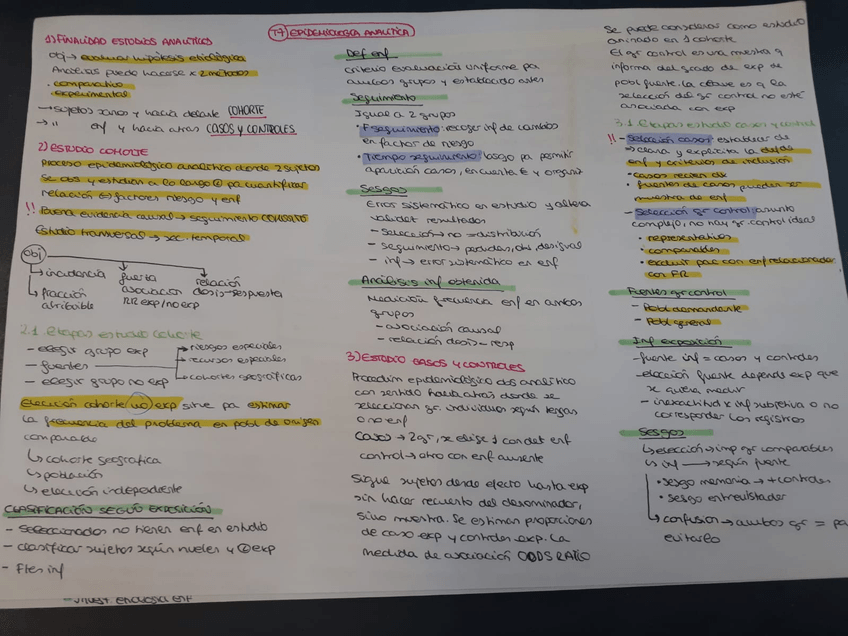 T4 EPIDEMIOLOGIA ANALITICA
1) FINALIDAD ESTUDIOS ANALITICOS
obj → evaluar hipótesis etiológica
Análisis puede hacerse x 2 métodos
· comparativo
· experimental
→ sujetos sanos y hacia delante COHORTE
→ " enf y hacia atras CASOS Y CONTROLES
2) ESTUDIO COHORTE
Proceso epidemiológico analitico donde 2 sujetos
se obs y estudian a lo largo pa cuantificar
relación factores riesgo y enf
!! Buena evidencia causal → seguimiento COMPLETO
Estudio transversal → sec. temporal
obj
→ incidencia
→ fracción atribuible
fuerza asociacion RR exp/no exp
relación dosis-respuesta
2.1 Etapas estudio cohorte
- elegir grupo exp
- fuentes
→ riesgos especiales
→ recursos especiales
→ cohortes geográficas
- elegir grupo no exp
Elección cohorte no exp sirve pa estimar
la frecuencia del problema en pobl de origen
comparado
↳ cohorte geografica
↳ población
↳ elección independiente
CLASIFICACIÓN SEGÚN EXPOSICIÓN
- Seleccionados no tienen enf en estudio
- clasificar sujetos según niveles y exp
- Ftes inf
Def enf
criterio evaluación uniforme pa
ambos grupos y establecido antes
Seguimiento
Igual a 2 grupos
· F seguimiento: recoger inf de cambios
en factor de riesgo
· Tiempo seguimiento: largo pa permitir
aparición casos, en cuenta € y organiz
Sesgos
Error sistemático en estudio y altera
validet resultados
- Selección → no = distribución
- seguimiento → perdidas, obs desigual
- inf → error sistemático en enf
Análisis inf obtenida
Medición frecuencia enf en ambos
grupos
- asociación causal
- relación dosis-resp
3) ESTUDIO CASOS Y CONTROLES
Procedim epidemiológico obs analítico
con sentido hacia atras donde se
seleccionan gr individuos según tengas
o no enf
Casos → 2 gr, se elige 1 con det enf
control → otro con enf ausente
Sigue sujetos desde efecto hasta exp
sin hacer recuento del denominador,
sino muestra. Se estiman proporciones
de caso exp y controles exp. La
medida de asociación ODDS RATIO
Se puede considerar como estudio
anidado en 1 cohorte
El gr control es una muestra q
informa del grado de exp se
pobl fuente. La clave es q la
selección del gr control no esté
asociada con exp
3.1 Etapas estudio casos y control
!! - Selección casos: establecer de
clara y explícita la
enf y criterios de inclusión
· casos recien dx
· fuentes de casos pueden ser
muestra de enf
- Selección gr control: asunto
complejo, no hay gr control ideal
· representativos
· comparables
· excluir pac con enf relacionadas
con FR
Fuentes gr control
- Pobl demandante
- Pobl general
Inf exposición
- fuente inf = casos y controles
- elección fuente depende exp que
se quiera medir
- inexactitud x inf subjetiva o no
corresponder los registros
Sesgos
↳ selección → imp gr comparables
↳ inf → según fuente
· sesgo memoria → + controles
· sesgo entrevistador
↳ confusion → ambos gr = pa
evitarlo